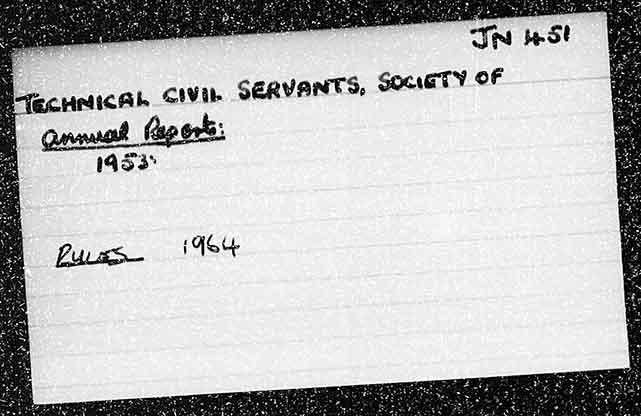 JN 451
TECHNICAL CIVIL SERVANTS, SOCIETY OF
Annual Reports:
1953:
RULES 1964